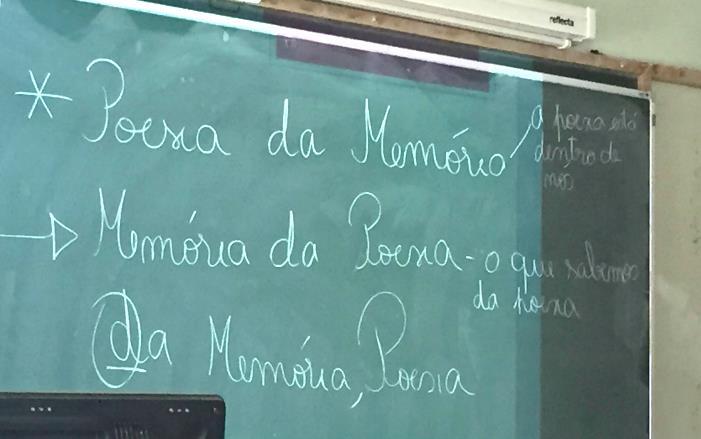 reflecta
* Poesia da Memória
a poesia está
dentro de
nós
→ Memória da Poesia - o que sabemos
da poesia
Da Memória, Poesia